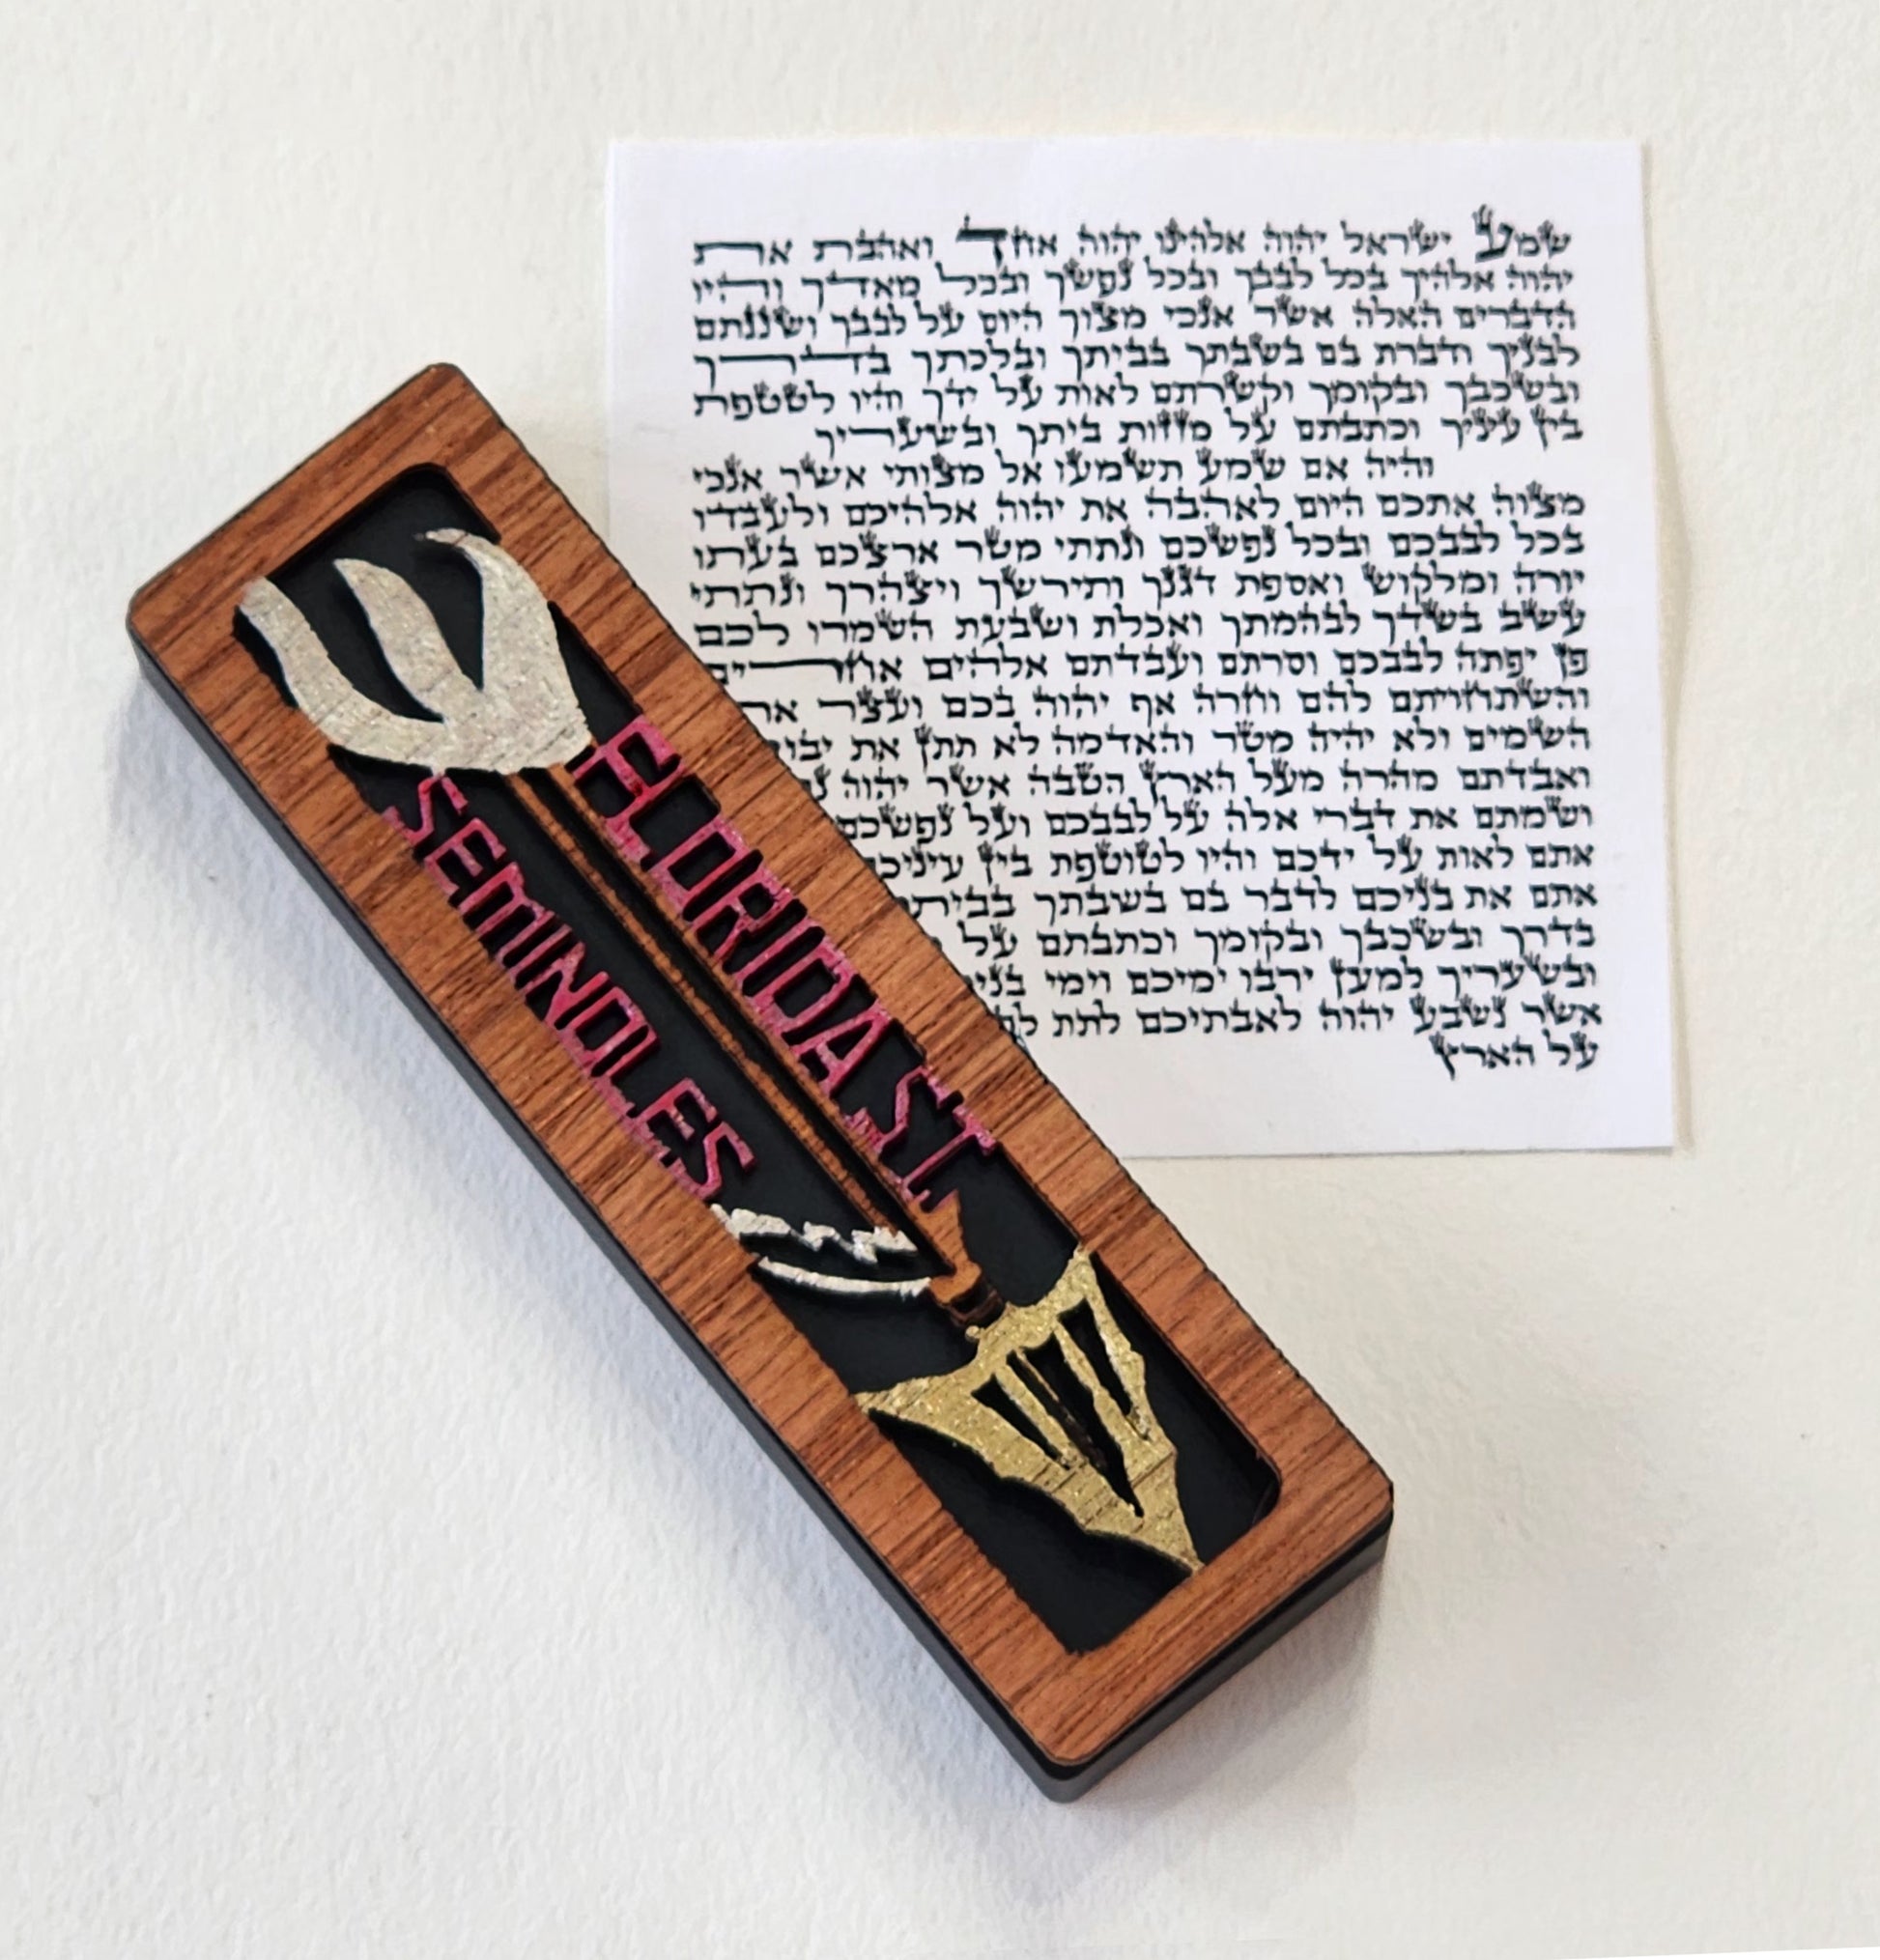 שמע ישראל יהוה אלהינו יהוה אחד ואהבת את
יהוה אלהיך בכל לבבך ובכל נפשך ובכל מאדך והיו
הדברים האלה אשר אנכי מצוך היום על לבבך ושננתם
לבניך ודברת בם בשבתך בביתך ובלכתך בדרך
ובשכבך ובקומך וקשרתם לאות על ידך והיו לטטפת
בין עיניך וכתבתם על מזזות ביתך ובשעריך
והיה אם שמע תשמעו אל מצותי אשר אנכי
מצוה אתכם היום לאהבה את יהוה אלהיכם ולעבדו
בכל לבבכם ובכל נפשכם ונתתי מטר ארצכם בעתו
יורה ומלקוש ואספת דגנך ותירשך ויצהרך ונתתי
עשב בשדך לבהמתך ואכלת ושבעת השמרו לכם
פן יפתה לבבכם וסרתם ועבדתם אלהים אחרים
והשתחויתם להם וחרה אף יהוה בכם ועצר
השמים ולא יהיה מטר והאדמה לא תתן את
ואבדתם מהרה מעל הארץ הטבה אשר יהוה
ושמתם את דברי אלה על לבבכם ועל נפשכם
אתם לאות על ידכם והיו לטוטפת בין
אתם את בניכם לדבר בם בשבתך
בדרך ובשכבך ובקומך וכתבתם על
ובשעריך למען ירבו ימיכם וימי
אשר נשבע יהוה לאבתיכם לתת
על הארץ
ש
FLORIDA ST.
SEMINOLES